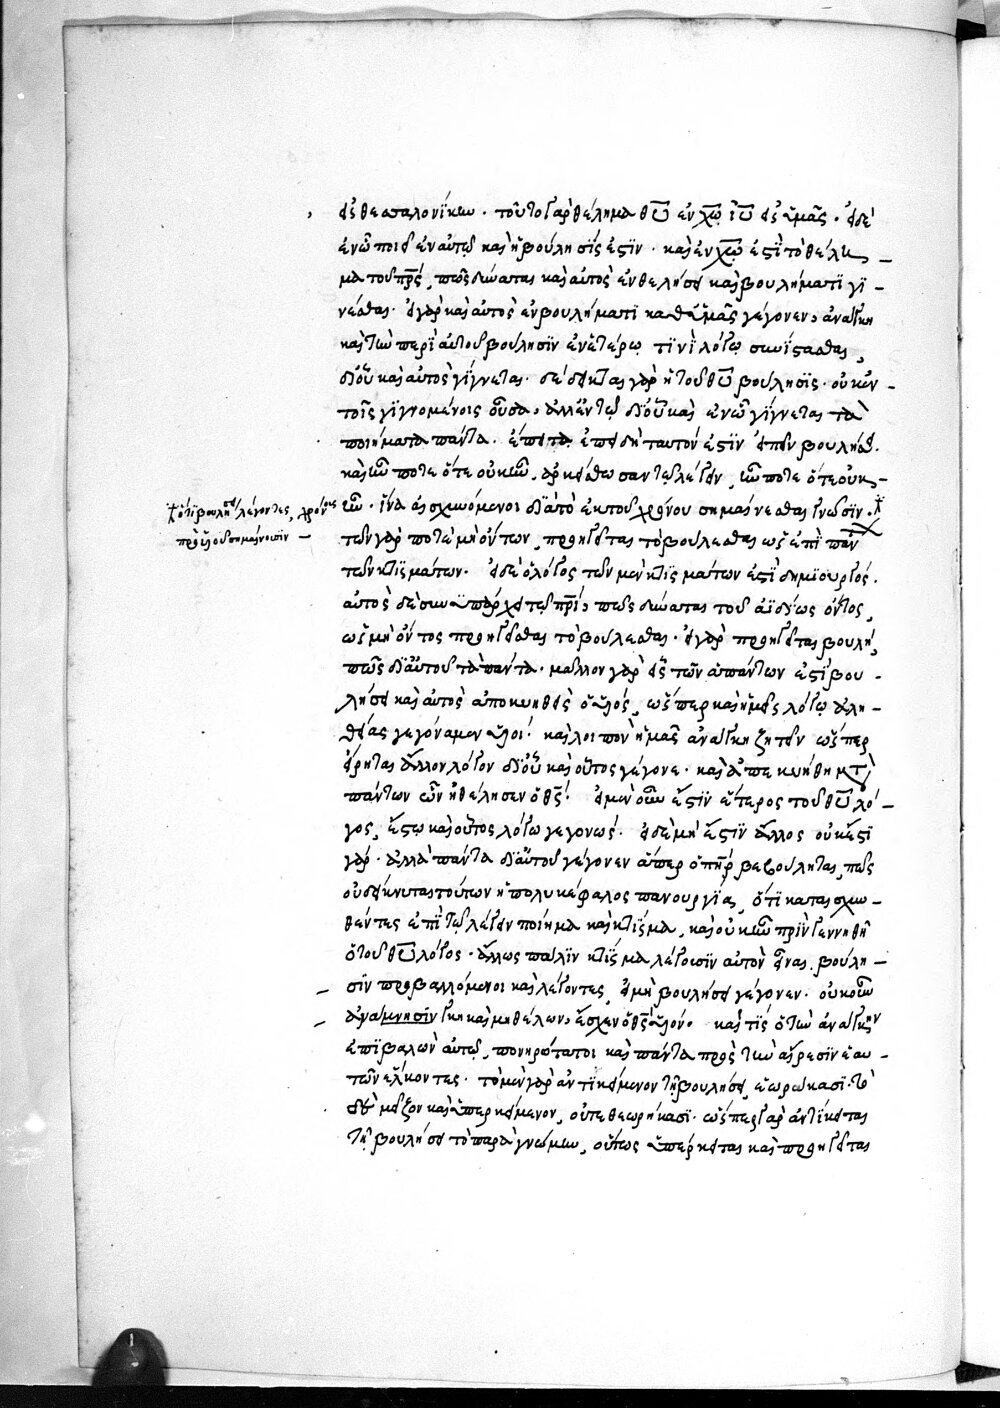 εἰς θεσσαλονίκην. τοῦτο γὰρ θέλημα θῦ ἐν χῶ ἰῦ εἰς ὑμᾶς. εἰ δὲ
ἐν ᾧ ποιεῖ ἐν αὐτῷ καὶ ἡ βούλησίς ἐστιν. καὶ ἐν χῶ ἐστὶ τὸ θέλη–
μα τοῦ πρς, πῶς δύναται καὶ αὐτὸς ἐν θελήσει καὶ βουλήματι γί–
νεσθαι. εἰ γὰρ καὶ αὐτὸς ἐν βουλήματι καθ' ὑμᾶς γέγονεν, ἀνάγκη
καὶ τὴν περὶ αὐτοῦ βούλησιν ἐν ἑτέρῳ τινὶ λόγῳ συνίστασθαι,
δι' οὗ καὶ αὐτὸς γίγνεται. δέδεικται γὰρ ἡ τοῦ θῦ βούλησις. οὐκ ἐν
τοῖς γιγνομένοις οὖσα, ἀλλ' ἐν τῷ δι' οὗ καὶ ἐν ᾧ γίγνεται τὰ
ποιήματα πάντα. ἔπειτα ἐπειδὴ ταυτόν ἐστιν εἰπεῖν βουλήσει.
καὶ ἦν ποτε ὅτε οὐκ ἦν, ἀρκείσθωσαν τῷ λέγειν, ἦν ποτε ὅτε οὐκ–
ἦν. ἵνα αἰσχυνόμενοι διὰ τὸ ἐκ τοῦ χρόνου σημαίνεσθαι γνῶσιν.
☩ ὅτι βουλήσει λέγοντες, χρόνους
προ υἱοῦ σημαίνουσιν –
τῶν γὰρ ποτὲ μὴ ὄντων, προηγεῖται τὸ βούλεσθαι ὡς ἐπὶ πάν
των κτισμάτων. εἰ δὲ ὁ λόγος τῶν μὲν κτισμάτων ἐστὶ δημιουργός.
αὐτὸς δὲ συνυπάρχει τῷ πρί, πῶς δύναται τοῦ ἀϊδίως ὄντος,
ὡς μὴ ὄντος προηγεῖσθαι τὸ βούλεσθαι. εἰ γὰρ προηγεῖται βουλή,
πῶς δι' αὐτοῦ τὰ πάντα. μᾶλλον γὰρ εἷς τῶν ἁπάντων ἐστὶ βου–
λήσει καὶ αὐτὸς ἀποκυηθεὶς ὁ υἱός, ὥσπερ καὶ ἡμεῖς λόγῳ ἀλη–
θείας γεγόναμεν υἱοί. καὶ λοιπὸν ἡμᾶς ἀνάγκη ζητεῖν ὥσπερ
εἴρηται ἄλλον λόγον δι' οὗ καὶ οὗτος γέγονε. καὶ ἀπεκυήθη μτὰ
πάντων ὧν ἠθέλησεν ὁ θς. εἰ μὲν οὖν ἔστιν ἕτερος τοῦ θῦ λό–
γος, ἔστω καὶ οὗτος λόγῳ γεγονώς. εἰ δὲ μή ἐστιν ἄλλος οὐκ ἔστι
γάρ. ἀλλὰ πάντα δι' αὐτοῦ γέγονεν ἅπερ ὁ πηρ βεβούληται, πῶς
οὐ δείκνυται τούτων ἡ πολυκέφαλος πανουργία, ὅτι καταισχυν–
θέντες ἐπὶ τῷ λέγειν ποίημα καὶ κτίσμα, καὶ οὐκ ἦν πρὶν γεννηθῆ
ὁ τοῦ θῦ λόγος. ἄλλως πάλιν κτίσμα λέγουσιν αὐτὸν εἶναι. βούλη–
σιν προβαλλόμενοι καὶ λέγοντες, εἰ μὴ βουλήσει γέγονεν. οὐκοῦν
ἀνάμνησιν γκη καὶ μὴ θέλων, ἔσχεν ὁ θς υἱόν. καὶ τίς ὁ τὴν ἀνάγκην
ἐπιβαλὼν αὐτῷ, πονηρότατοι καὶ πάντα πρὸς τὴν αἵρεσιν ἑαυ–
τῶν ἕλκοντες. τὸ μὲν γὰρ ἀντικείμενον τῇ βουλήσει, ἑωράκασι. τὸ
δὲ μεῖζον καὶ ὑπερκείμενον, οὐ τεθεωρήκασι. ὥσπερ γὰρ ἀντίκειται
τῇ βουλήσει τὸ παρὰ γνώμην, οὕτως ὑπέρκειται καὶ προηγεῖται